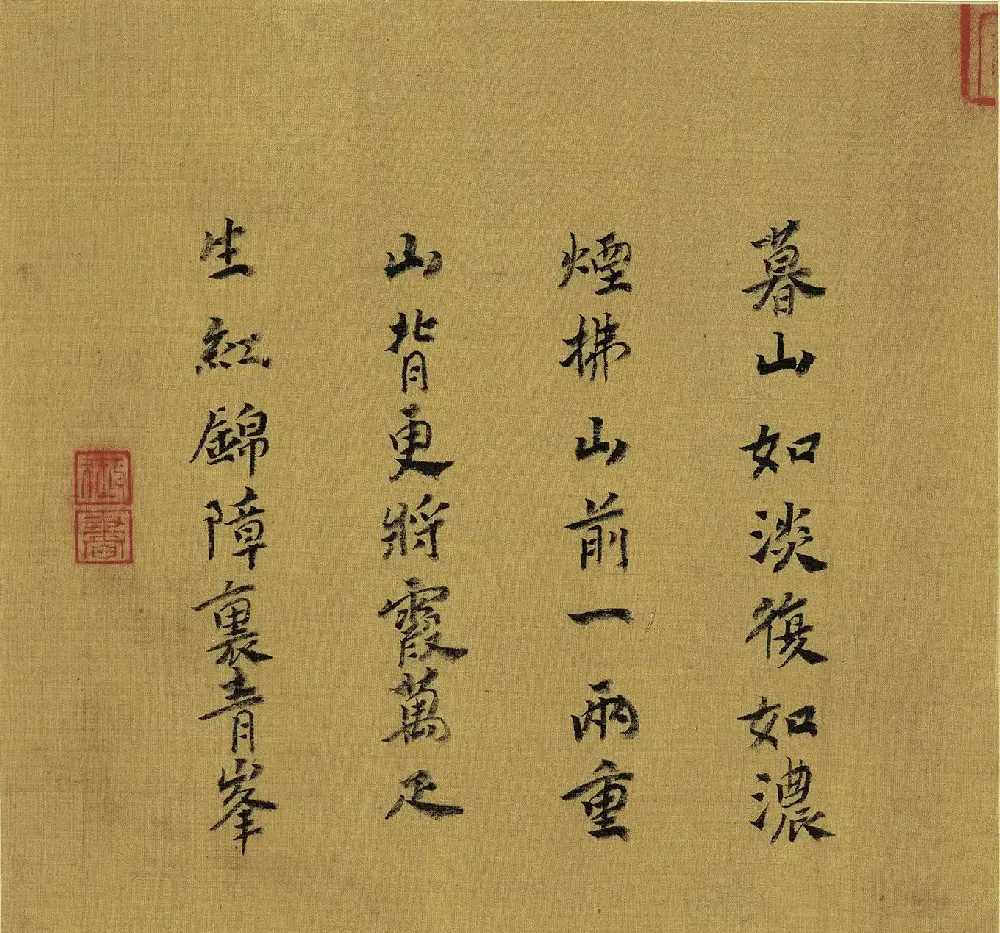 暮山如淡復如濃
煙拂山前一兩重
山背更將霞萬疋
生紅錦障裏青峯
御書